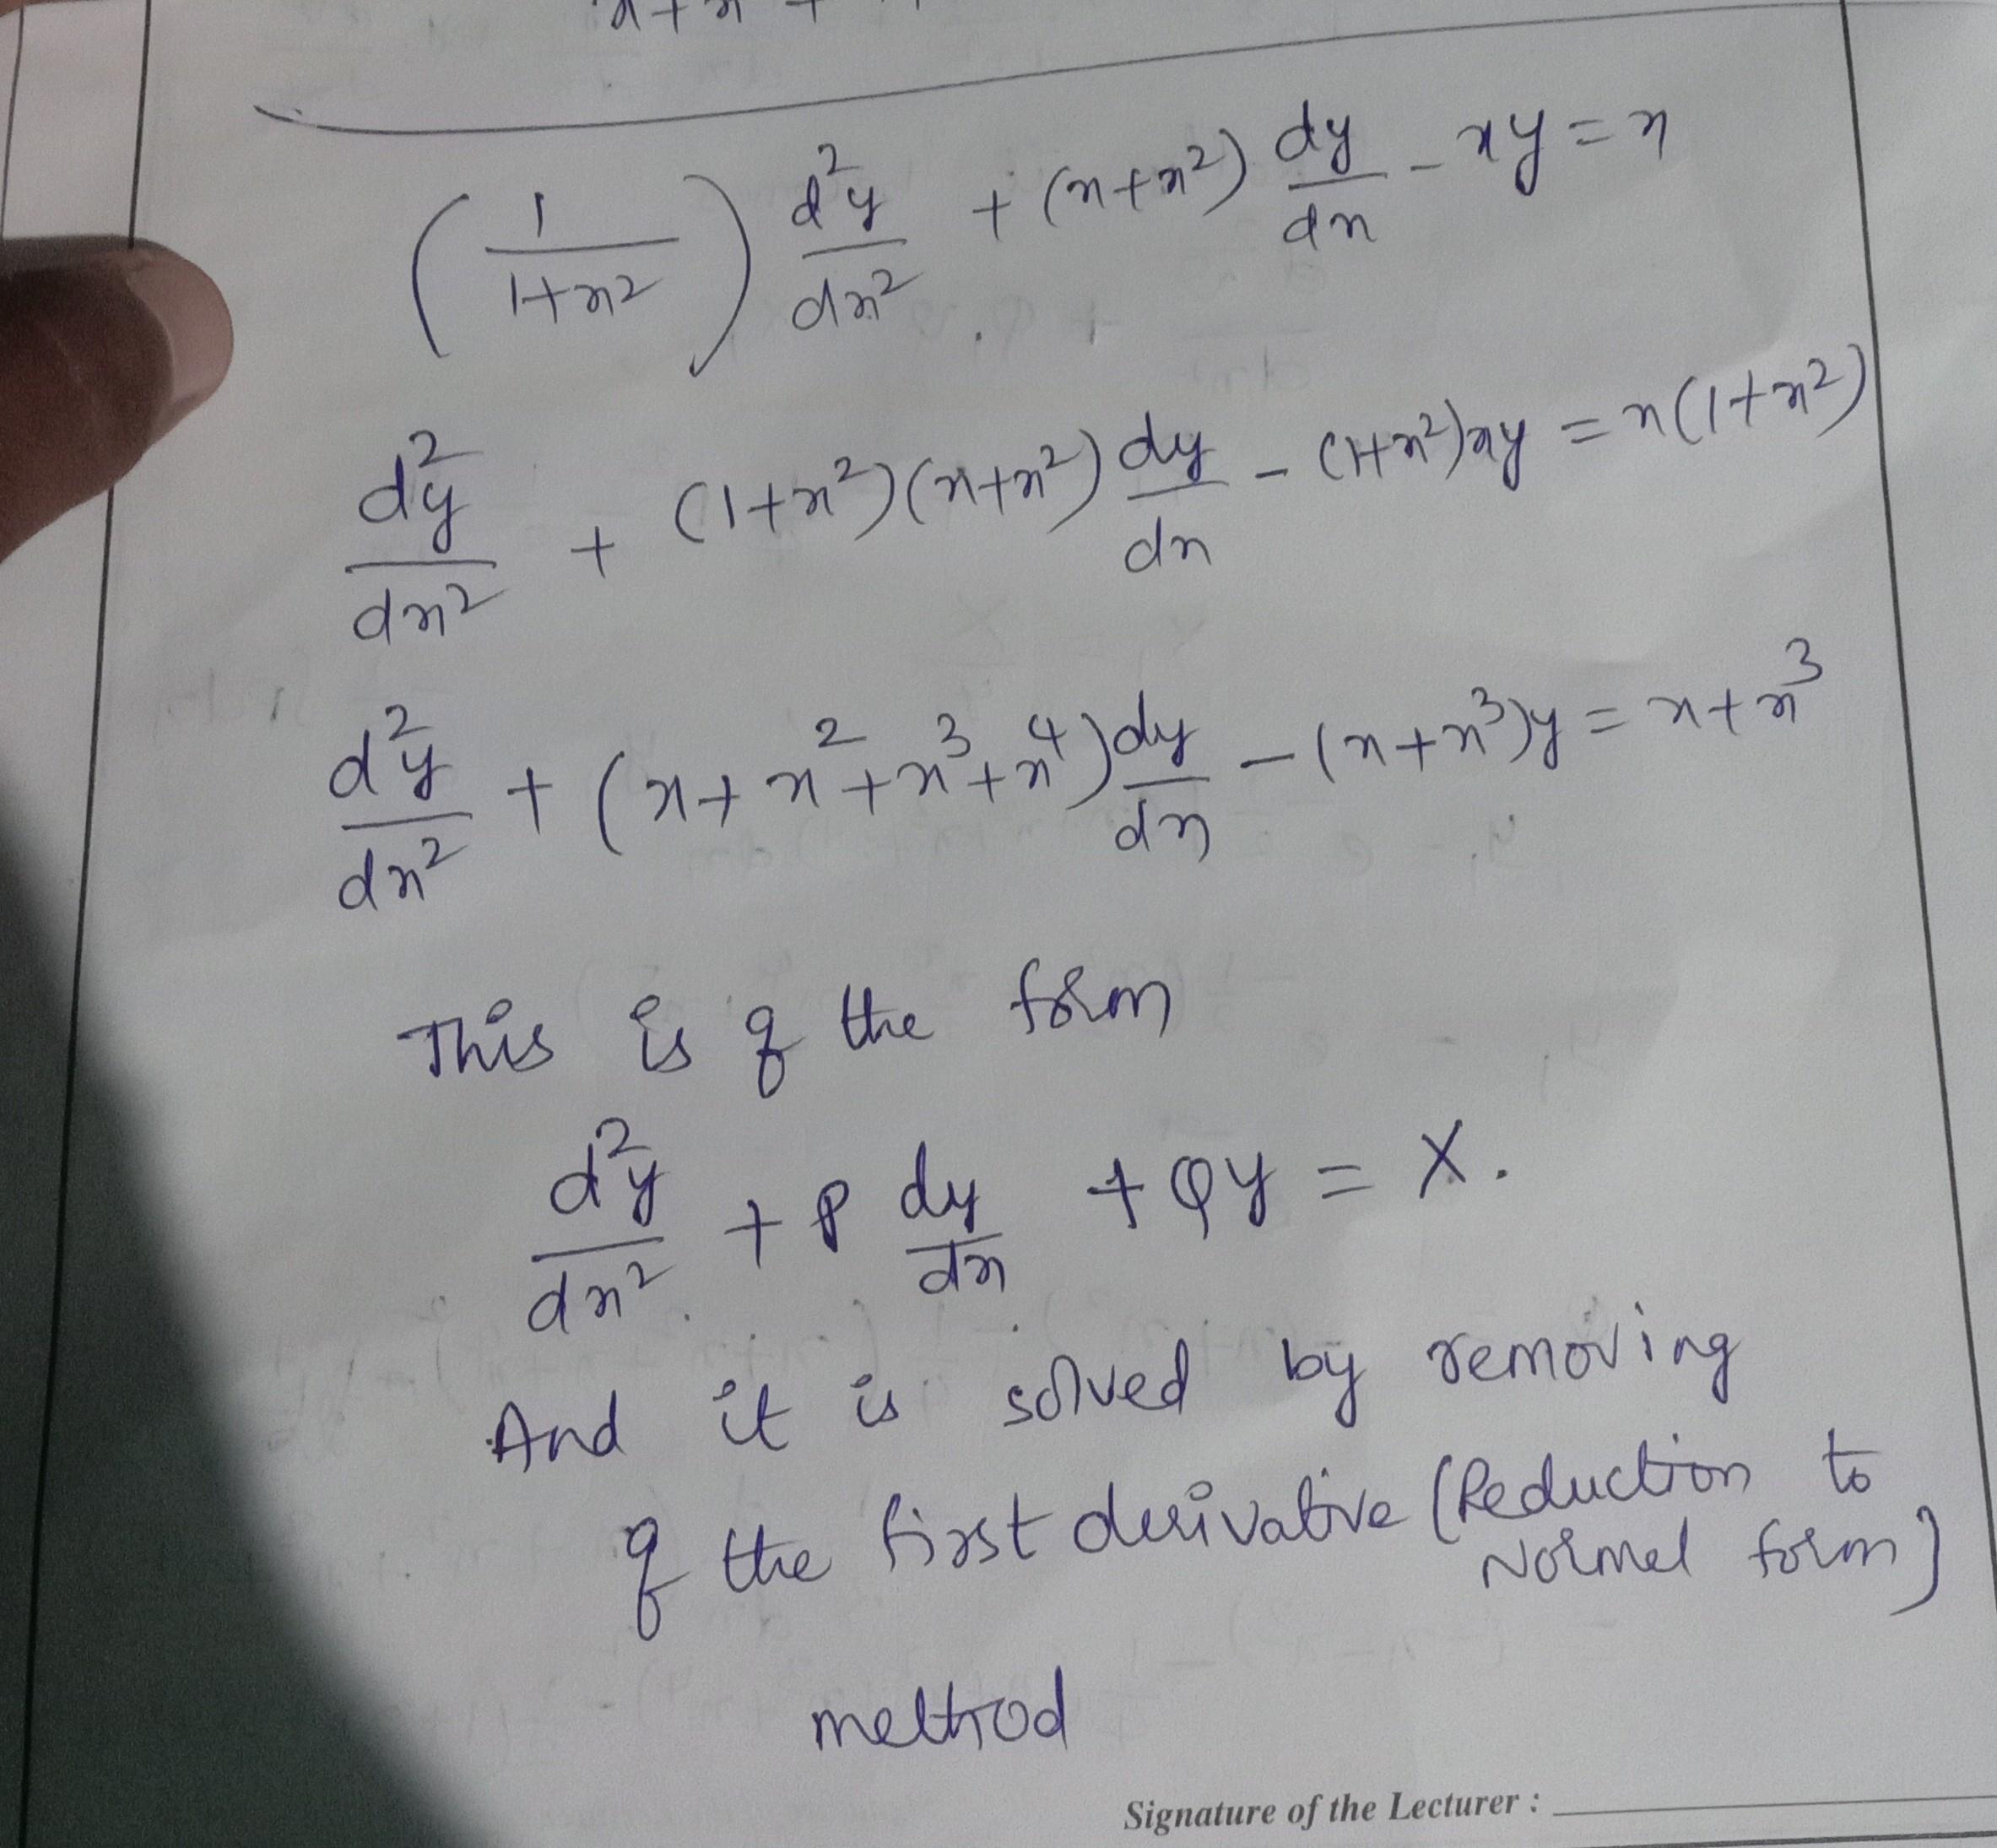 (1/(1+x²)) d²y/dx² + (x+x²) dy/dx - xy = x
d²y/dx² + (1+x²)(x+x²) dy/dx - (1+x²)xy = x(1+x²)
d²y/dx² + (x+x²+x³+x⁴) dy/dx - (x+x³)y = x+x³
This is of the form
d²y/dx² + P dy/dx + Qy = X.
And it is solved by removing
of the first derivative (Reduction to
Normal form)
method
Signature of the Lecturer :